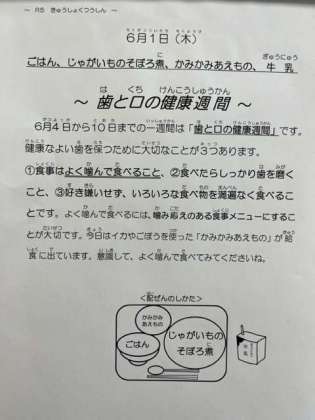 ～ R5 きゅうしょくつうしん ～
6月1日（木）
ごはん、じゃがいものそぼろ煮、かみかみあえもの、牛乳
～ 歯と口の健康週間 ～
6月4日から10日までの一週間は「歯と口の健康週間」です。
健康なよい歯を保つために大切なことが3つあります。
①食事はよく噛んで食べること、②食べたらしっかり歯を磨く
こと、③好き嫌いせず、いろいろな食べ物を満遍なく食べるこ
とです。よく噛んで食べるには、噛み応えのある食事メニューにするこ
とが大切です。今日はイカやごぼうを使った「かみかみあえもの」が給
食に出ています。意識して、よく噛んで食べてみてくださいね。
＜配ぜんのしかた＞
かみかみ
あえもの
ごはん
じゃがいもの
そぼろ煮
牛乳